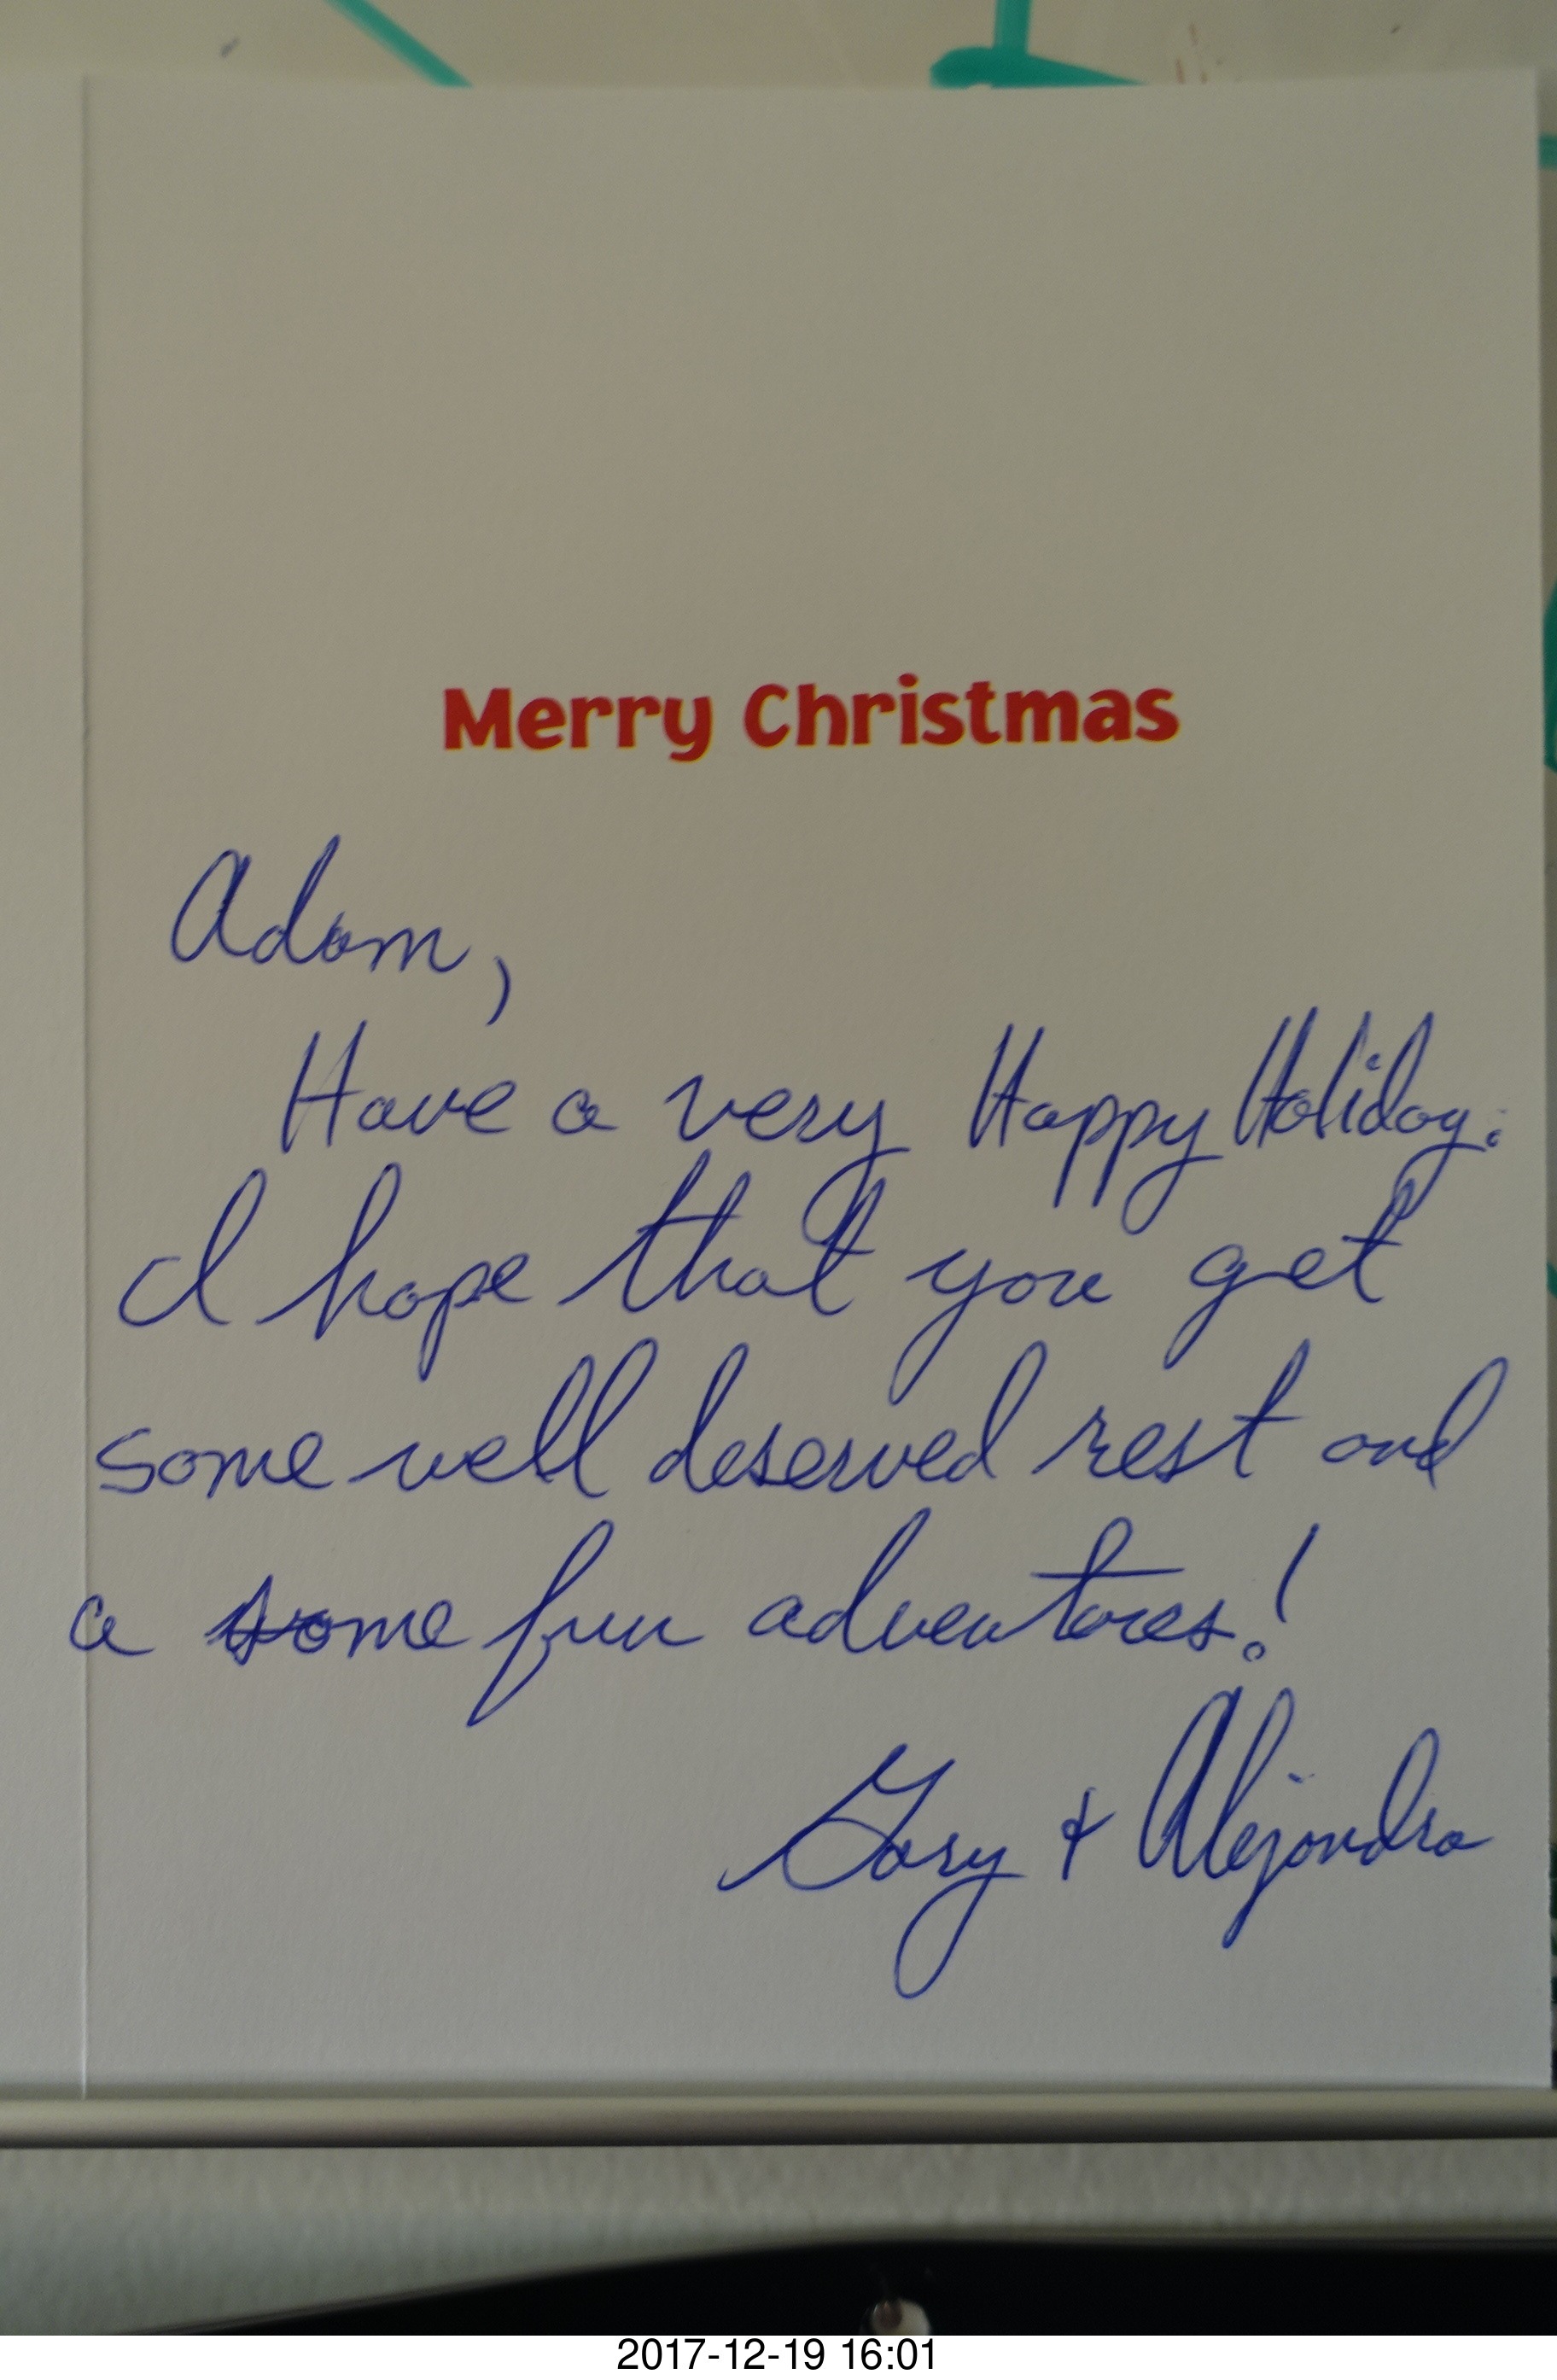 Merry Christmas
Adam,
Have a very Happy Holiday.
I hope that you get
some well deserved rest and
a some fun adventures!
Gary & Alejandra
2017-12-19 16:01